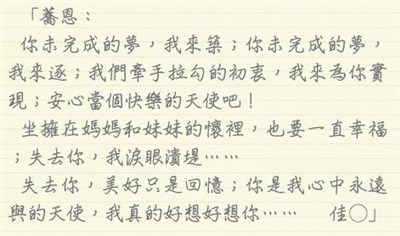 「蕎恩：
你未完成的夢，我來築；你未完成的夢，
我來逐；我們牽手拉勾的初衷，我來為你實
現；安心當個快樂的天使吧！
坐擁在媽媽和妹妹的懷裡，也要一直幸福
；失去你，我淚眼潰堤……
失去你，美好只是回憶；你是我心中永遠
與的天使，我真的好想好想你……　佳○」